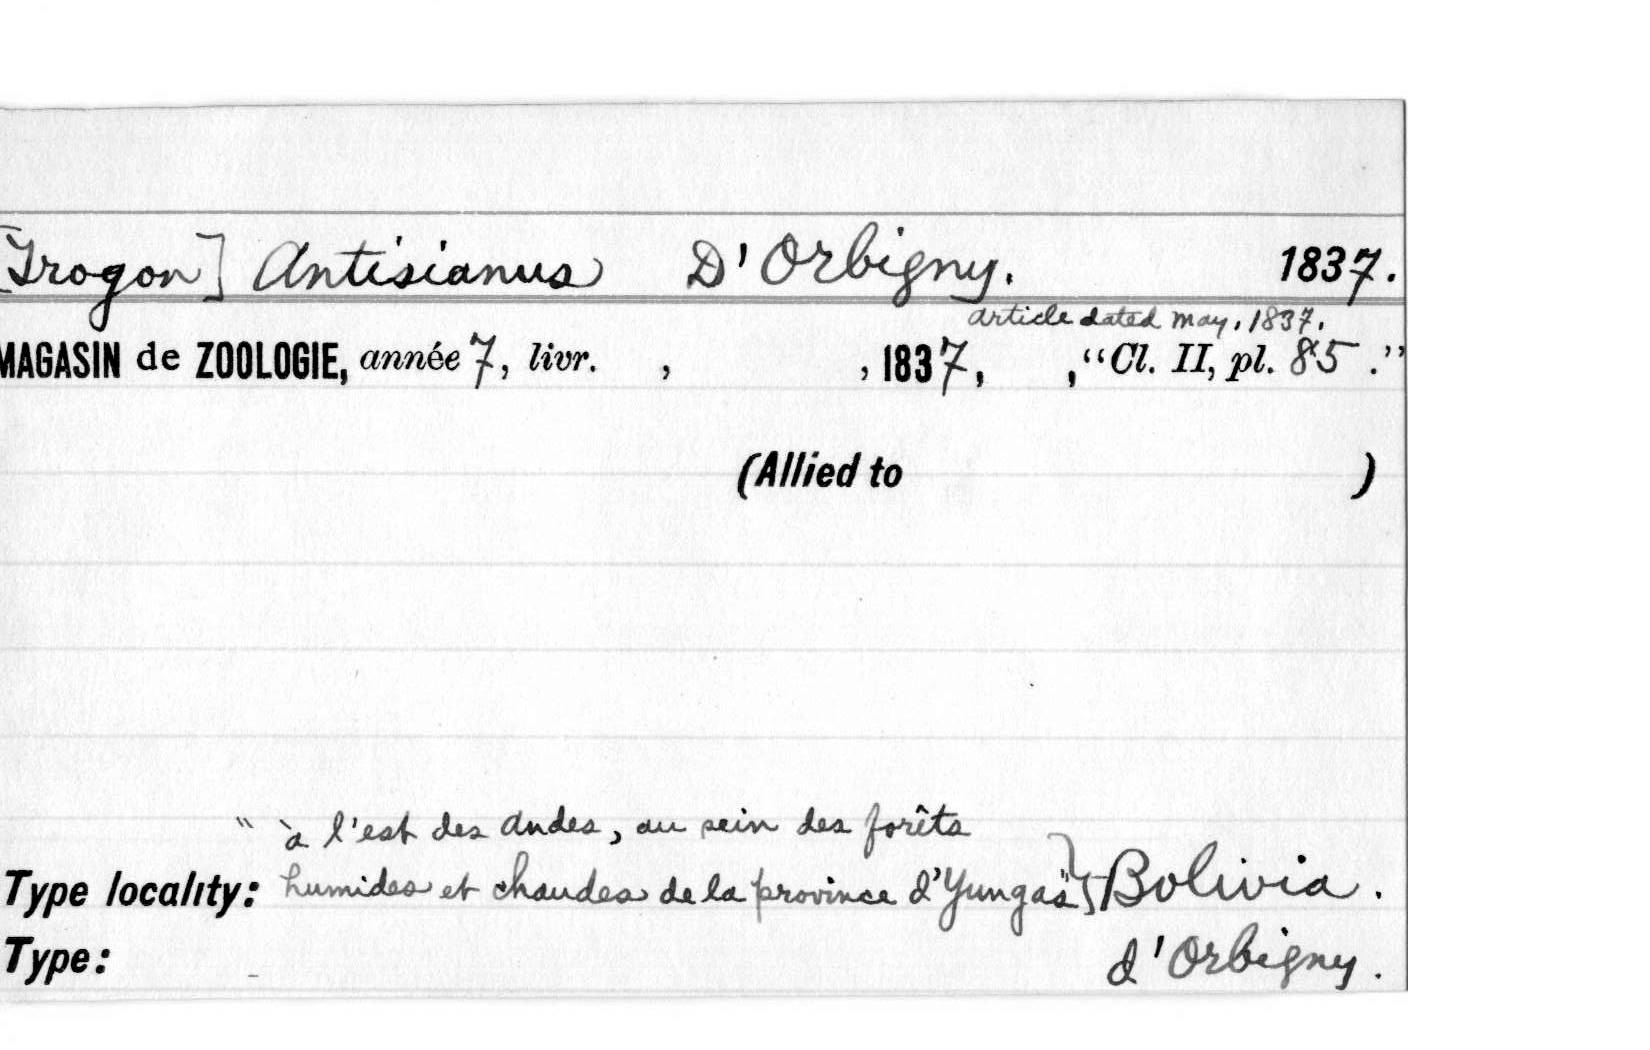 [Trogon] Antisianus D'Orbigny. 1837.
article dated may, 1837.
MAGASIN de ZOOLOGIE, année 7, livr. , , 1837, , "Cl. II, pl. 85."
(Allied to )
" à l'est des Andes, au sein des forêts
Type locality: humides et chaudes de la province d'Yungas" } Bolivia.
Type: d'Orbigny.